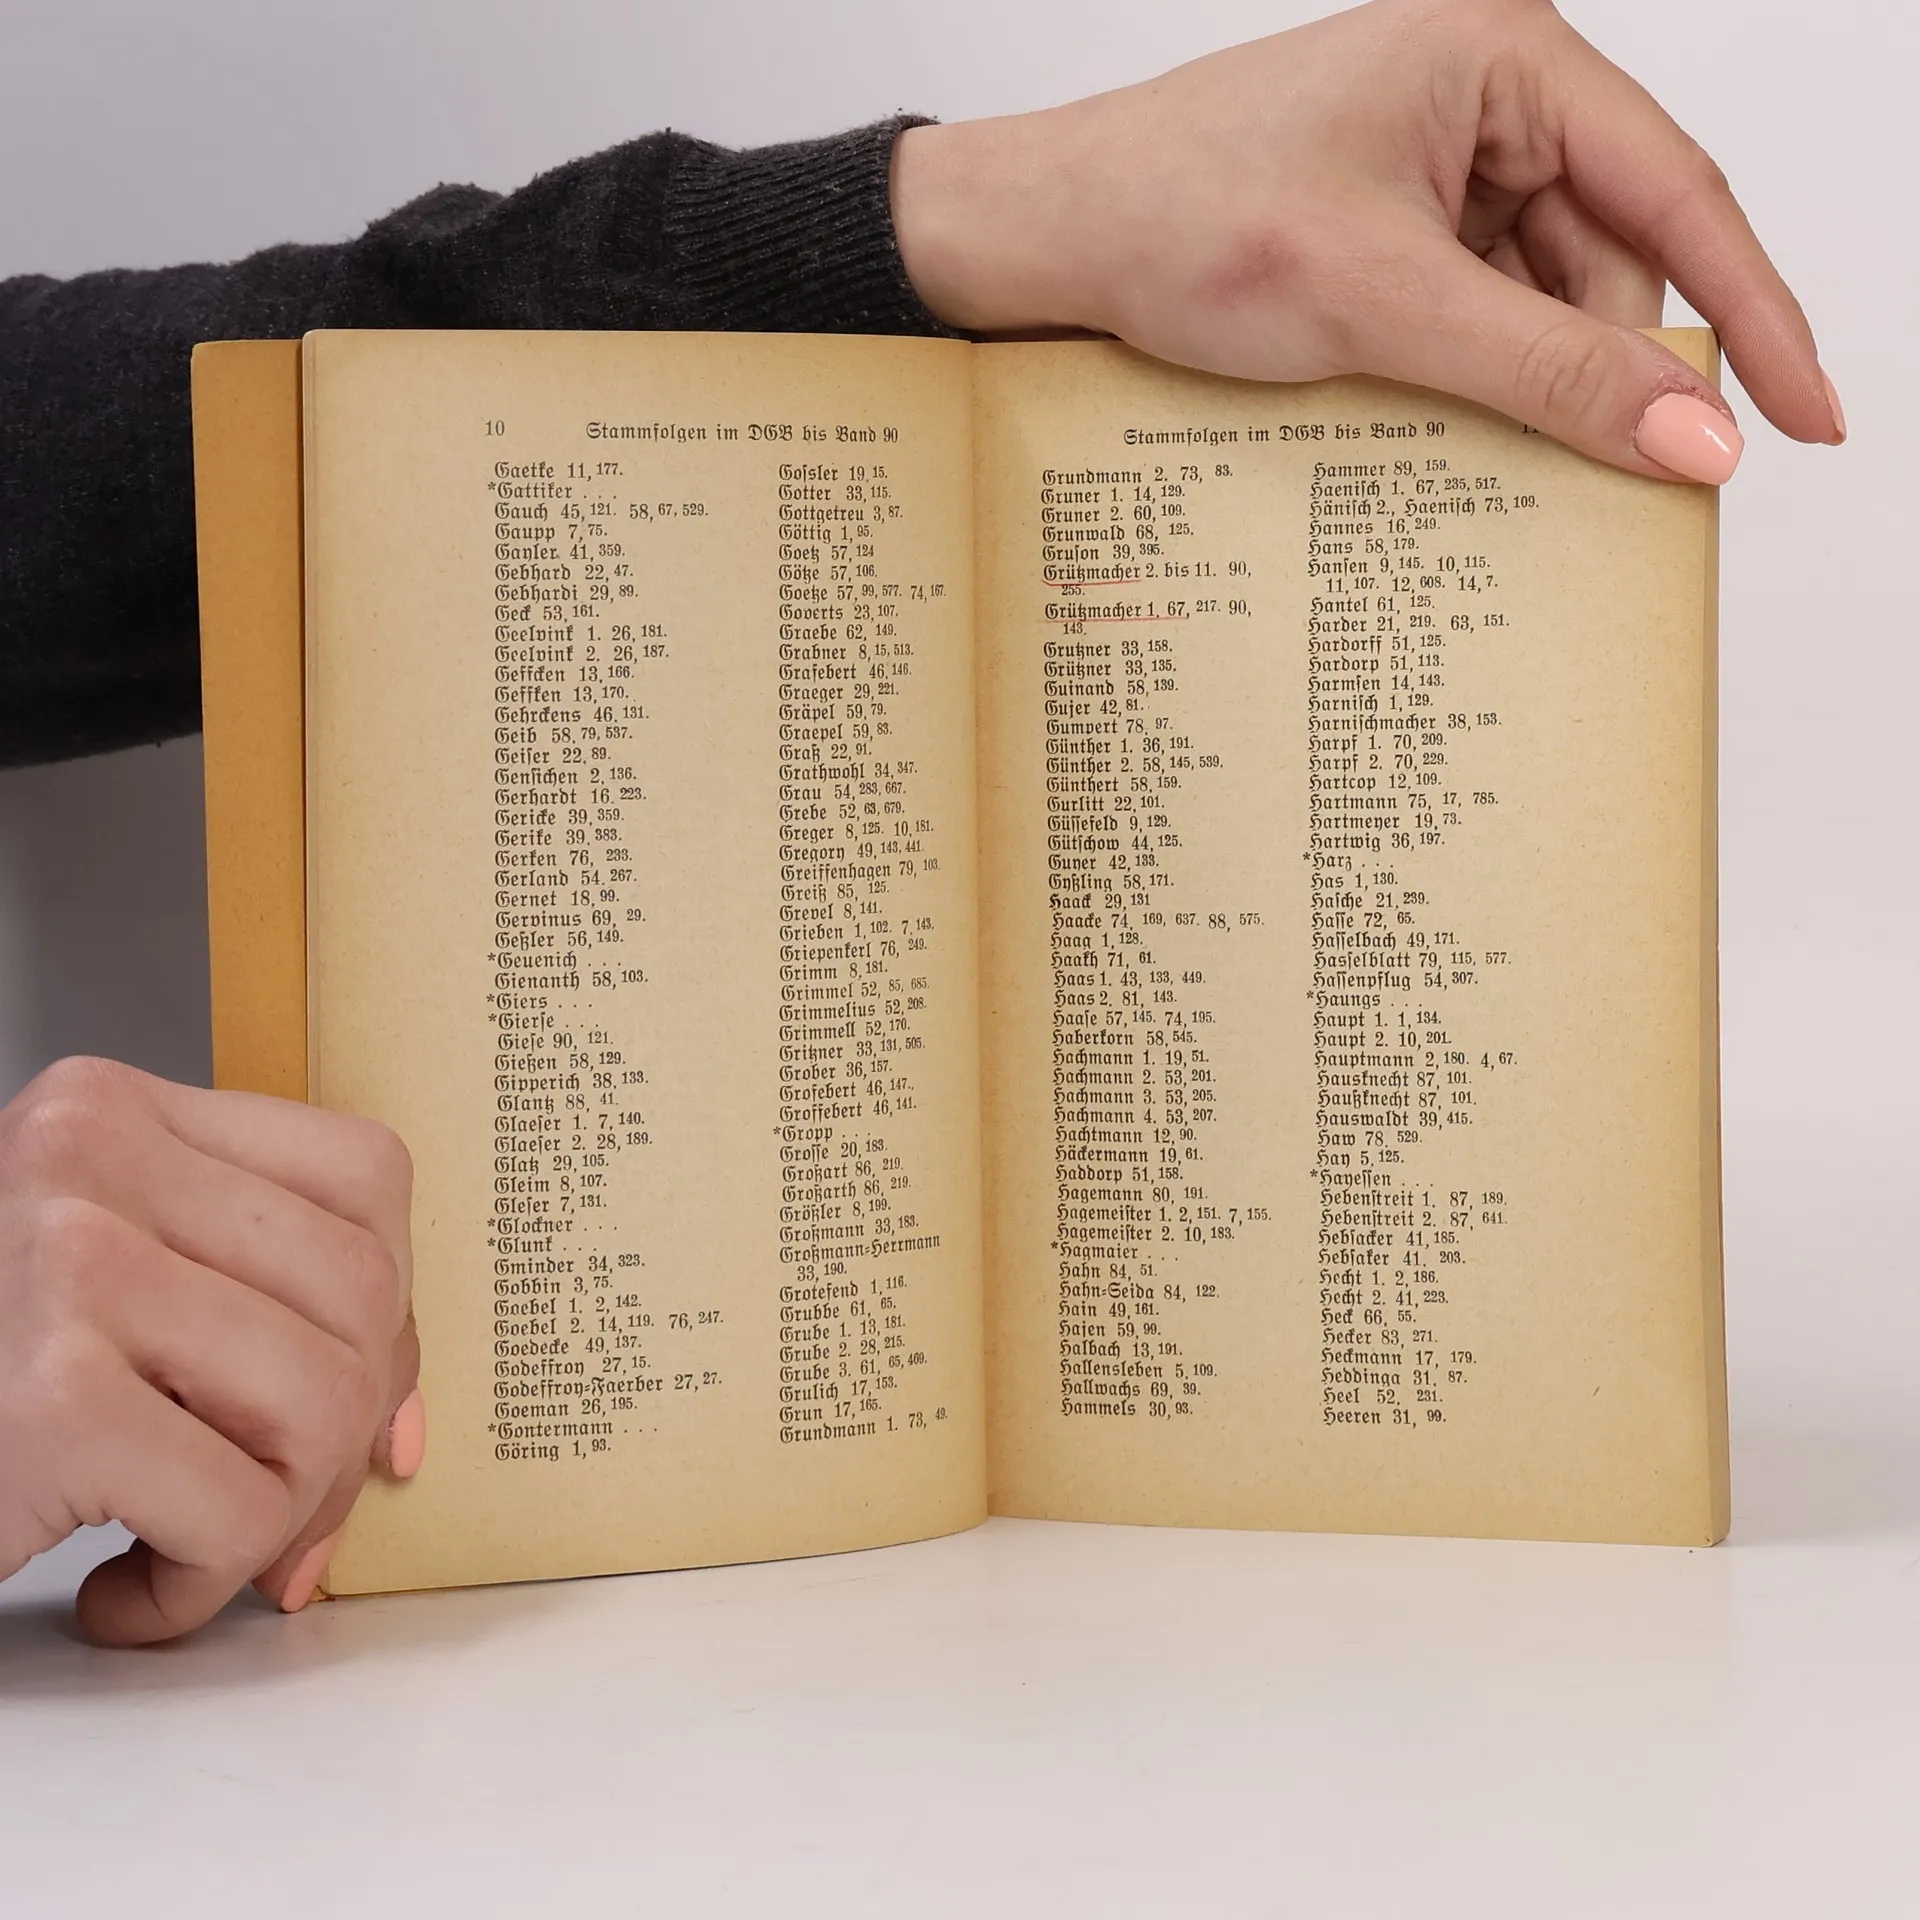 10 Stammfolgen im DGB bis Band 90
Gaetke 11, 177.
*Gattiker . . .
Gauch 45, 121. 58, 67, 529.
Gaupp 7, 75.
Gayler 41, 359.
Gebhard 22, 47.
Gebhardi 29, 89.
Geck 53, 161.
Geelvink 1. 26, 181.
Geelvink 2. 26, 187.
Geffcken 13, 166.
Geffken 13, 170.
Gehrckens 46, 131.
Geib 58, 79, 537.
Geiser 22, 89.
Gensichen 2, 136.
Gerhardt 16. 223.
Gericke 39, 359.
Gerike 39, 383.
Gerken 76, 233.
Gerland 54. 267.
Gernet 18, 99.
Gervinus 69, 29.
Geßler 56, 149.
*Geuenich . . .
Gienanth 58, 103.
*Giers . . .
*Gierse . . .
Giese 90, 121.
Gießen 58, 129.
Gipperich 38, 133.
Glantz 88, 41.
Glaeser 1. 7, 140.
Glaeser 2. 28, 189.
Glatz 29, 105.
Gleim 8, 107.
Gleser 7, 131.
*Glockner . . .
*Glunk . . .
Gminder 34, 323.
Gobbin 3, 75.
Goebel 1. 2, 142.
Goebel 2. 14, 119. 76, 247.
Goedecke 49, 137.
Godeffroy 27, 15.
Godeffroy=Faerber 27, 27.
Goeman 26, 195.
*Gontermann . . .
Göring 1, 93.
Gossler 19, 15.
Gotter 33, 115.
Gottgetreu 3, 87.
Göttig 1, 95.
Goetz 57, 124
Götze 57, 106.
Goetze 57, 99, 577. 74, 167.
Goverts 23, 107.
Graebe 62, 149.
Grabner 8, 15, 513.
Grafebert 46, 146.
Graeger 29, 221.
Gräpel 59, 79.
Graepel 59, 83.
Graß 22, 91.
Grathwohl 34, 347.
Grau 54, 283, 667.
Grebe 52, 63, 679.
Greger 8, 125. 10, 181.
Gregory 49, 143, 441.
Greiffenhagen 79, 103.
Greiß 85, 125.
Grevel 8, 141.
Grieben 1, 102. 7, 143.
Griepenkerl 76, 249.
Grimm 8, 181.
Grimmel 52, 85, 685.
Grimmelius 52, 208.
Grimmell 52, 170.
Gritzner 33, 131, 505.
Grober 36, 157.
Grofebert 46, 147.,
Groffebert 46, 141.
*Gropp . . .
Grosse 20, 183.
Großart 86, 219.
Großarth 86, 219.
Größler 8, 199.
Großmann 33, 183.
Großmann=Herrmann
33, 190.
Grotefend 1, 116.
Grubbe 61, 65.
Grube 1. 13, 181.
Grube 2. 28, 215.
Grube 3. 61, 65, 469.
Grulich 17, 153.
Grun 17, 165.
Grundmann 1. 73, 49.
Stammfolgen im DGB bis Band 90
Grundmann 2. 73, 83.
Gruner 1. 14, 129.
Gruner 2. 60, 109.
Grunwald 68, 125.
Gruson 39, 395.
Grützmacher 2. bis 11. 90,
255.
Grützmacher 1. 67, 217. 90,
143.
Grutzner 33, 158.
Grützner 33, 135.
Guinand 58, 139.
Gujer 42, 81.
Gumpert 78, 97.
Günther 1. 36, 191.
Günther 2. 58, 145, 539.
Günthert 58, 159.
Gurlitt 22, 101.
Güssefeld 9, 129.
Gütschow 44, 125.
Guyer 42, 133.
Gyßling 58, 171.
Haack 29, 131
Haacke 74, 169, 637. 88, 575.
Haag 1, 128.
Haakh 71, 61.
Haas 1. 43, 133, 449.
Haas 2. 81, 143.
Haase 57, 145. 74, 195.
Haberkorn 58, 545.
Hachmann 1. 19, 51.
Hachmann 2. 53, 201.
Hachmann 3. 53, 205.
Hachmann 4. 53, 207.
Hachtmann 12, 90.
Häckermann 19, 61.
Haddorp 51, 158.
Hagemann 80, 191.
Hagemeister 1. 2, 151. 7, 155.
Hagemeister 2. 10, 183.
*Hagmaier . . .
Hahn 84, 51.
Hahn=Seida 84, 122.
Hain 49, 161.
Hajen 59, 99.
Halbach 13, 191.
Hallensleben 5, 109.
Hallwachs 69, 39.
Hammels 30, 93.
Hammer 89, 159.
Haenisch 1. 67, 235, 517.
Hänisch 2., Haenisch 73, 109.
Hannes 16, 249.
Hans 58, 179.
Hansen 9, 145. 10, 115.
11, 107. 12, 608. 14, 7.
Hantel 61, 125.
Harder 21, 219. 63, 151.
Hardorff 51, 125.
Hardorp 51, 113.
Harmsen 14, 143.
Harnisch 1, 129.
Harnischmacher 38, 153.
Harpf 1. 70, 209.
Harpf 2. 70, 229.
Hartcop 12, 109.
Hartmann 75, 17, 785.
Hartmeyer 19, 73.
Hartwig 36, 197.
*Harz . . .
Has 1, 130.
Hasche 21, 239.
Hasse 72, 65.
Hasselbach 49, 171.
Hasselblatt 79, 115, 577.
Hassenpflug 54, 307.
*Haungs . . .
Haupt 1. 1, 134.
Haupt 2. 10, 201.
Hauptmann 2, 180. 4, 67.
Hausknecht 87, 101.
Haußknecht 87, 101.
Hauswaldt 39, 415.
Haw 78, 529.
Hay 5, 125.
*Hayessen . . .
Hebenstreit 1. 87, 189.
Hebenstreit 2. 87, 641.
Hebsacker 41, 185.
Hebsaker 41, 203.
Hecht 1. 2, 186.
Hecht 2. 41, 223.
Heck 66, 55.
Hecker 83, 271.
Heckmann 17, 179.
Heddinga 31. 87.
Heel 52, 231.
Heeren 31, 99.